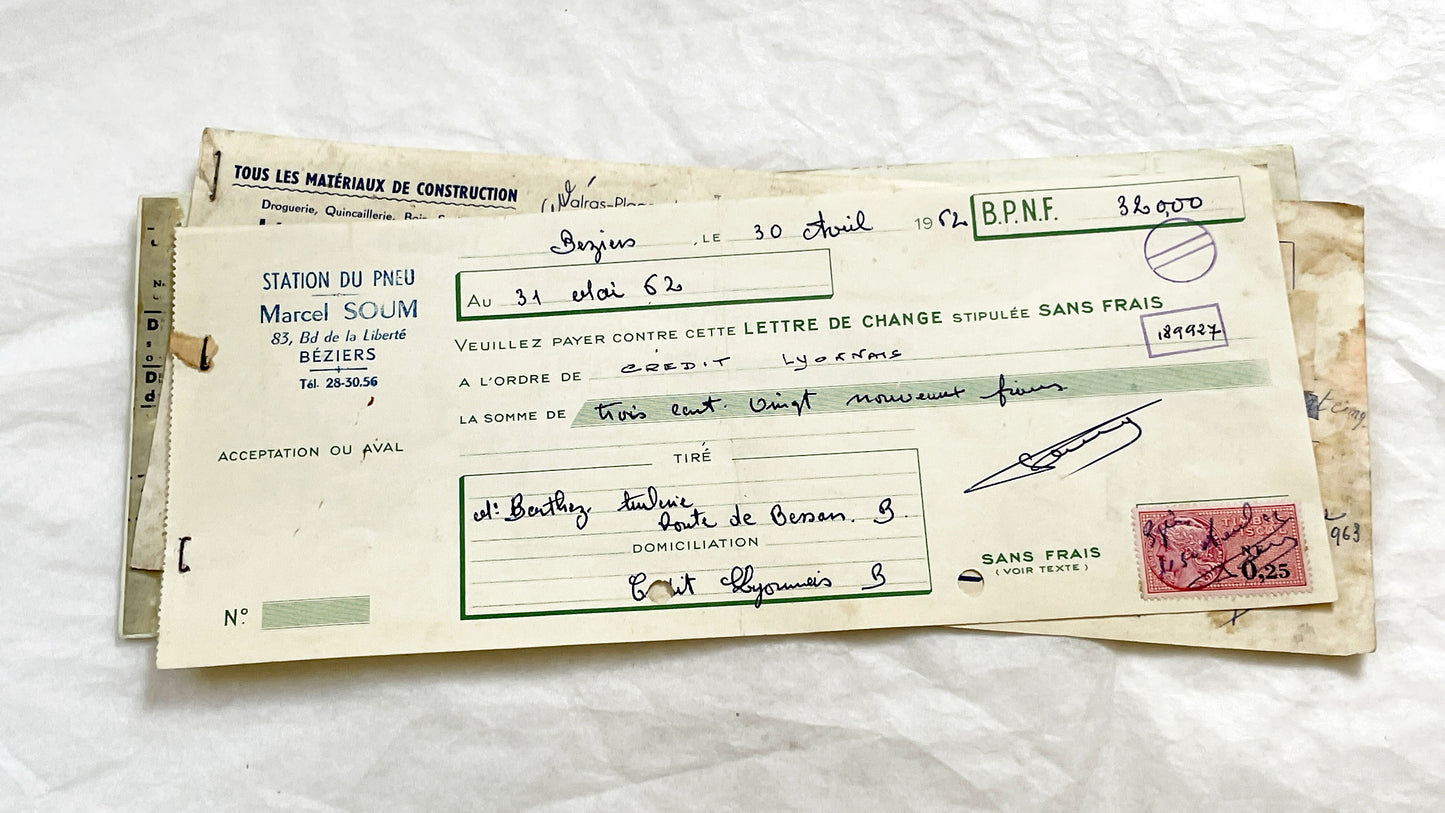 TOUS LES MATÉRIAUX DE CONSTRUCTION
Droguerie, Quincaillerie,
Béziers, LE 30 Avril 1962
B.P.N.F. 320,00
STATION DU PNEU
Marcel SOUM
83, Bd de la Liberté
BÉZIERS
Tél. 28-30.56
AU 31 Mai 62
VEUILLEZ PAYER CONTRE CETTE LETTRE DE CHANGE STIPULÉE SANS FRAIS
189927
A L'ORDRE DE CRÉDIT LYONNAIS
LA SOMME DE trois cent vingt nouveaux francs
ACCEPTATION OU AVAL
TIRÉ
Mr Berthez
Route de Bessan. B.
DOMICILIATION
Lyonnais B
SANS FRAIS
(VOIR TEXTE)
NF
0,25
No.
963